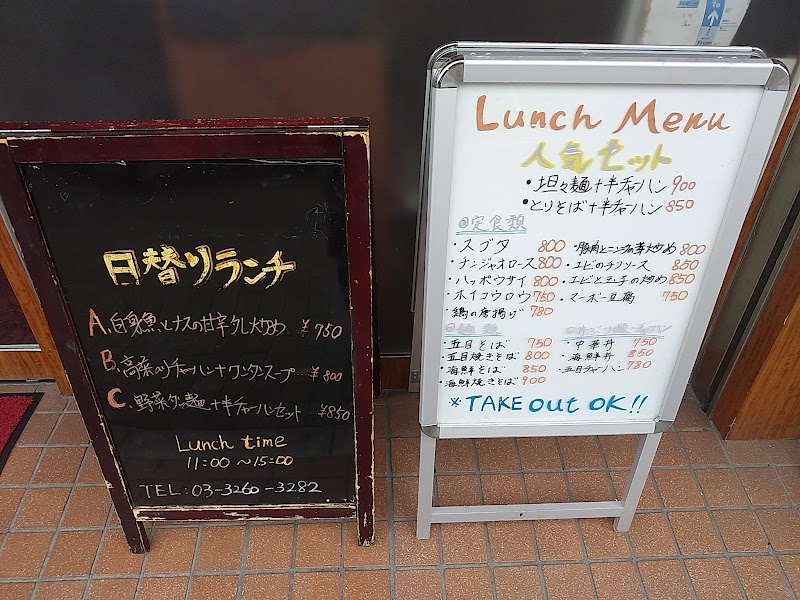 日替りランチ
A. 白身魚とナスの甘辛タレ炒め ¥750
B. 高菜入りチャーハン+ワンタンスープ ¥800
C. 野菜タンタン麺+半チャーハンセット ¥850
Lunch time
11:00 ~ 15:00
TEL: 03-3260-3282
Lunch Menu
人気セット
・坦々麺+半チャーハン 900
・とりそば+半チャーハン 850
定食類
・スブタ 800
・チンジャオロース 800
・ハッポウサイ 800
・ホイコウロウ 750
・鶏の唐揚げ 780
・豚肉とニンニクの芽炒め 800
・エビのチリソース 850
・エビと玉子の炒め 850
・マーボー豆腐 750
麺類
・五目そば 750
・五目焼きそば 800
・海鮮そば 850
・海鮮焼きそば 900
チャーハン
・中華丼 750
・海鮮丼 850
・五目チャーハン 780
※ TAKE out OK!!